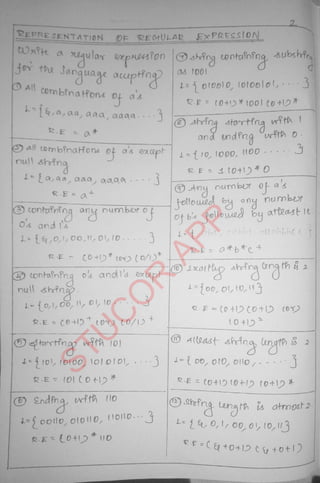 2
REPRESENTATION OF REGULAR EXPRESSION
Write a regular expression
for the language accepting
① All combinations of a's
L = {ε, a, aa, aaa, aaaa ....}
R.E = a*
② all combinations of a's except
null string
L = {a, aa, aaa, aaaa ....}
R.E = a⁺
③ containing any number of
0's and 1's
L = {ε, 0, 1, 00, 11, 01, 10 .....}
R.E = (0+1)* (or) (0/1)*
④ containing 0's and 1's except
null string.
L = {0, 1, 00, 11, 01, 10 ....}
R.E = (0+1)⁺ (or) (0/1)⁺
⑤ starting with 101
L = {101, 10100, 1010101, ....}
R.E = 101 (0+1)*
⑥ Ending with 110
L = {00110, 010110, 110110 ...}
R.E = (0+1)* 110
⑦ string containing substring
as 1001
L = {010010, 1010010 1, ....}
R.E = (0+1)* 1001 (0+1)*
⑧ string starting with 1
and ending with 0.
L = {10, 1000, 1100 ......}
R.E = 1 (0+1)* 0
⑨ Any number of a's
followed by any number
of b's followed by atleast 1c
L = {
R.E = a*b*c⁺
⑩ Exactly string length is 2
L = {00, 01, 10, 11}
R.E = (0+1) (0+1) (or)
(0+1)²
⑪ atleast string length is 2
L = {00, 010, 0110, ......}
R.E = (0+1) (0+1) (0+1)*
⑫ string length is atmost 2
L = {ε, 0, 1, 00, 01, 10, 11}
R.E = (ε+0+1) (ε+0+1)
STUCOR APP